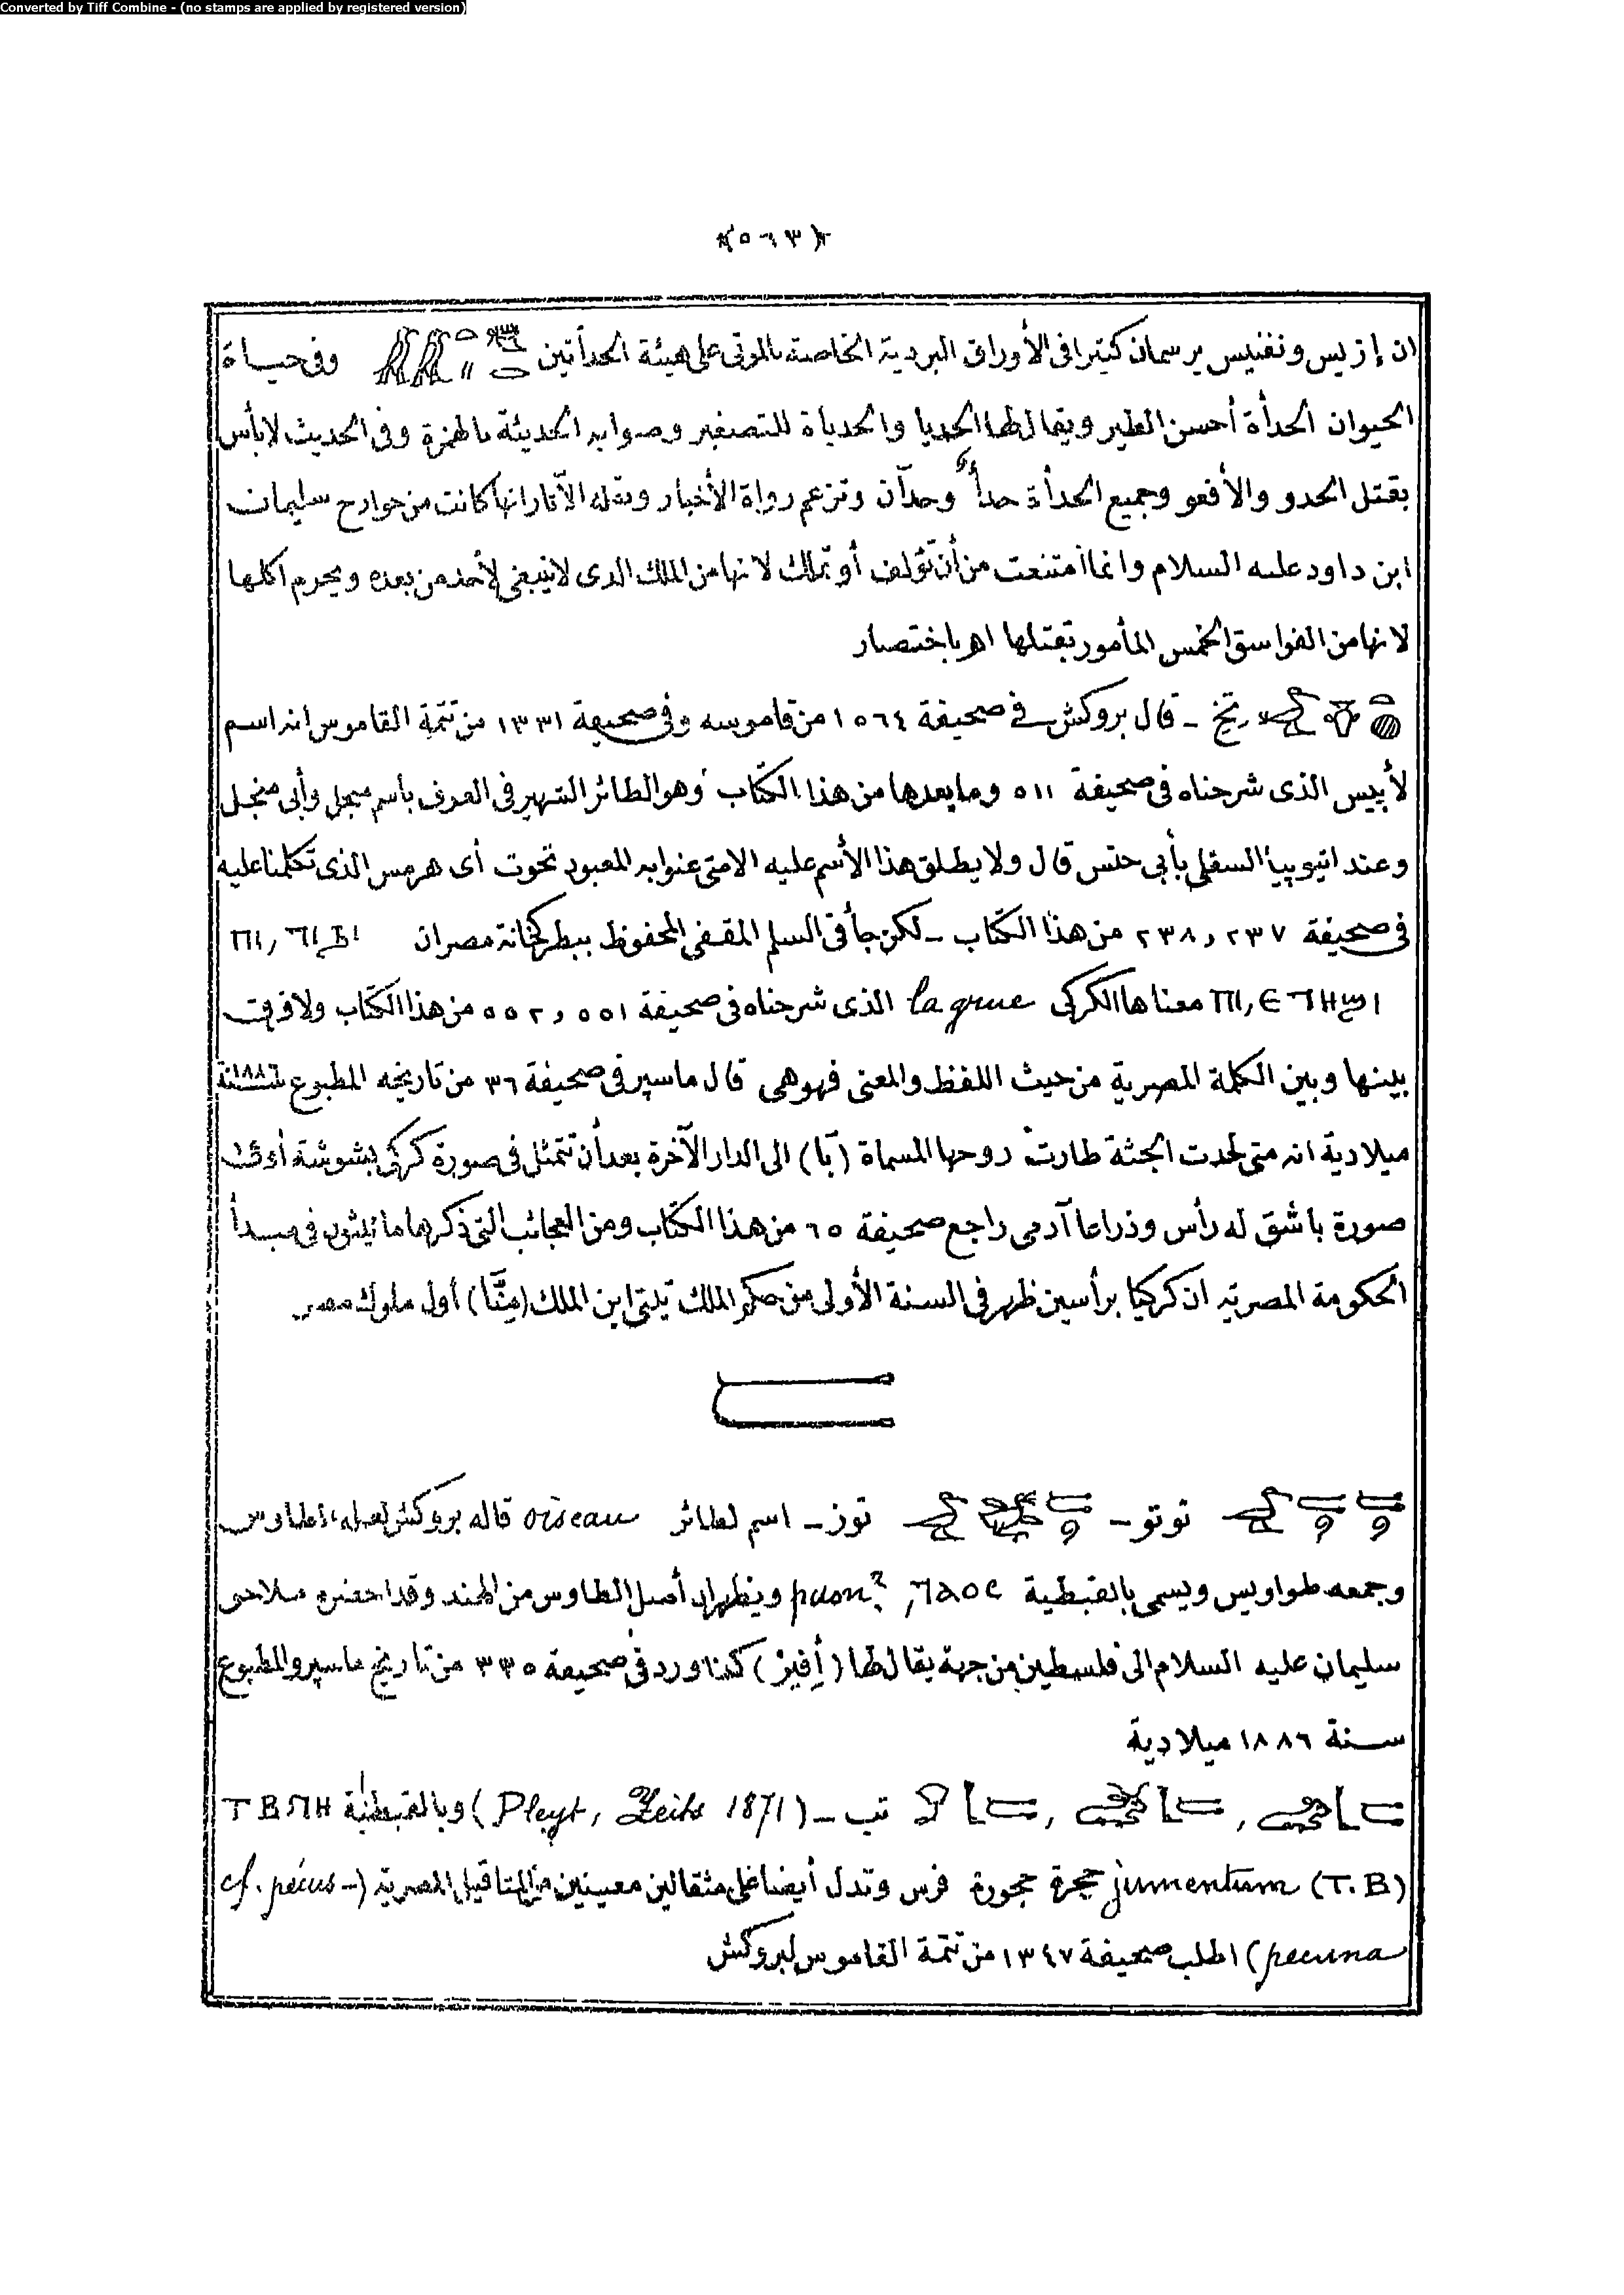 Converted by Tiff Combine - (no stamps are applied by registered version)
﴿٥٦٣﴾
ان إزيس ونفتيس يرسمان كثيرا فى الأوراق البردية الخاصة بالموتى على هيئة الحدأتين وفى حياة
الحيوان الحدأة أحسن الطير ويقال لها الحديا والحدياة للتصغير وصوابه الحديئة بالهمزة وفى الحديث لا بأس
بقتل الحدو والأفعو وجميع الحدأة حدأ وحدآن وتزعم رواة الأخبار ونقلة الآثار انها كانت من جوارح سليمان
ابن داود عليه السلام وانما امتنعت من أن تؤلف أو تملك لانها من الملك الذى لا ينبغى لأحد من بعده ويحرم اكلها
لانها من الفواسق الخمس المأمور بقتلها اهـ باختصار
ريخ ـ قال بروكش فى صحيفة ١٥٦٤ من قاموسه وفى صحيفة ١٣٣١ من تتمة القاموس انه اسم
لأبيس الذى شرحناه فى صحيفة ٥١١ وما بعدها من هذا الكتاب وهو الطائر الشهير فى العرف باسم منجل وأبى منجل
وعند اتيوبيا السفلى بأبى حنس قال ولا يطلق هذا الأسم عليه الا متى عنوا به المعبود تحوت أى هرمس الذى تكلمنا عليه
فى صحيفة ٢٣٧ و ٢٣٨ من هذا الكتاب ـ لكن جأ فى السلم المقفى المحفوظ ببطركخانة مصر ان
معناها الكركى la grue الذى شرحناه فى صحيفة ٥٥١ و ٥٥٢ من هذا الكتاب ولا فرق
بينها وبين الكلمة المصرية من حيث اللفظ والمعنى فهو هى قال ماسپرو فى صحيفة ٣٦ من تاريخه المطبوع سنة ١٨٨٦
ميلادية انه متى لحدت الجثة طارت روحها المسماة (بَا) الى الدار الآخرة بعد أن تتمثل فى صورة كركى بشوشة أو فى
صورة باشق له رأس وذراعا آدمى راجع صحيفة ٦٥ من هذا الكتاب ومن العجائب التى ذكرها مانيثون فى مبدأ
الحكومة المصرية ان كركيا برأسين ظهر فى السنة الأولى من حكم الملك تيتى ابن الملك (مِنَّا) أول ملوك مصر
توتو ـ توز ـ اسم لطائر oiseau قاله بروكش لعله الطاوس
وجمعه طواويس ويسمى بالقبطية puon? ويظهر ان أصل الطاوس من الهند وقد احضره ملاحى
سليمان عليه السلام الى فلسطين من جهة يقال لها (أفير) كذا ورد فى صحيفة ٣٣٥ من تاريخ ماسپرو المطبوع
سنة ١٨٨٦ ميلادية
تب ـ (Pleyt, Zeits 1871) وبالقبطية ΤΒΝΗ
(T.B) jumentum حجرة حجورة فرس وتدل أيضا على مثقالين معينين من المثاقيل المصرية (- cf. pecus
pecuna) اطلب صحيفة ١٣٤٧ من تتمة القاموس لبروكش